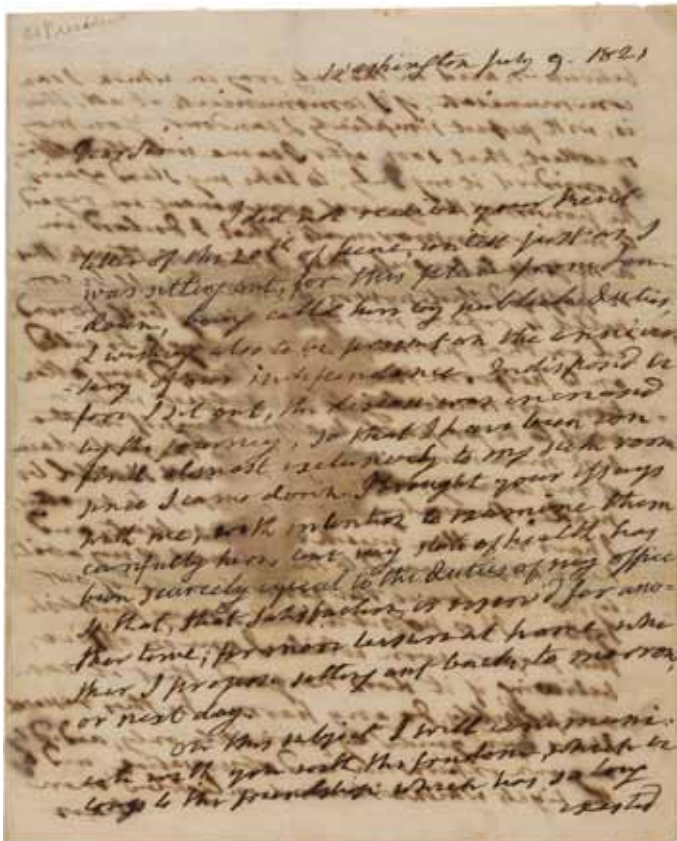 Washington July 9. 1821
Dear Sir
I did not receive your friend
letter of the 20th of June, untill just as I
was setting out, for this place from Lou-
doun, being called here by publick duties,
& wishing also to be present on the anniver
sary of our independance. Indispos'd be
fore I set out, the disease was increased
by the journey, so that I have been con-
fin'd almost exclusively to my sick room
since I came down. I brought your essays
with me, with intention to examine them
carefully here, but my state of health has
been scarcely equal to the duties of my office
so that, that satisfaction, is reserv'd for ano-
ther time, for more leisure
ther I propose setting out back, to morrow,
or next day.
On this subject I will communi-
cate with you with the candour, which be
longs to the friendship which has so long
existed